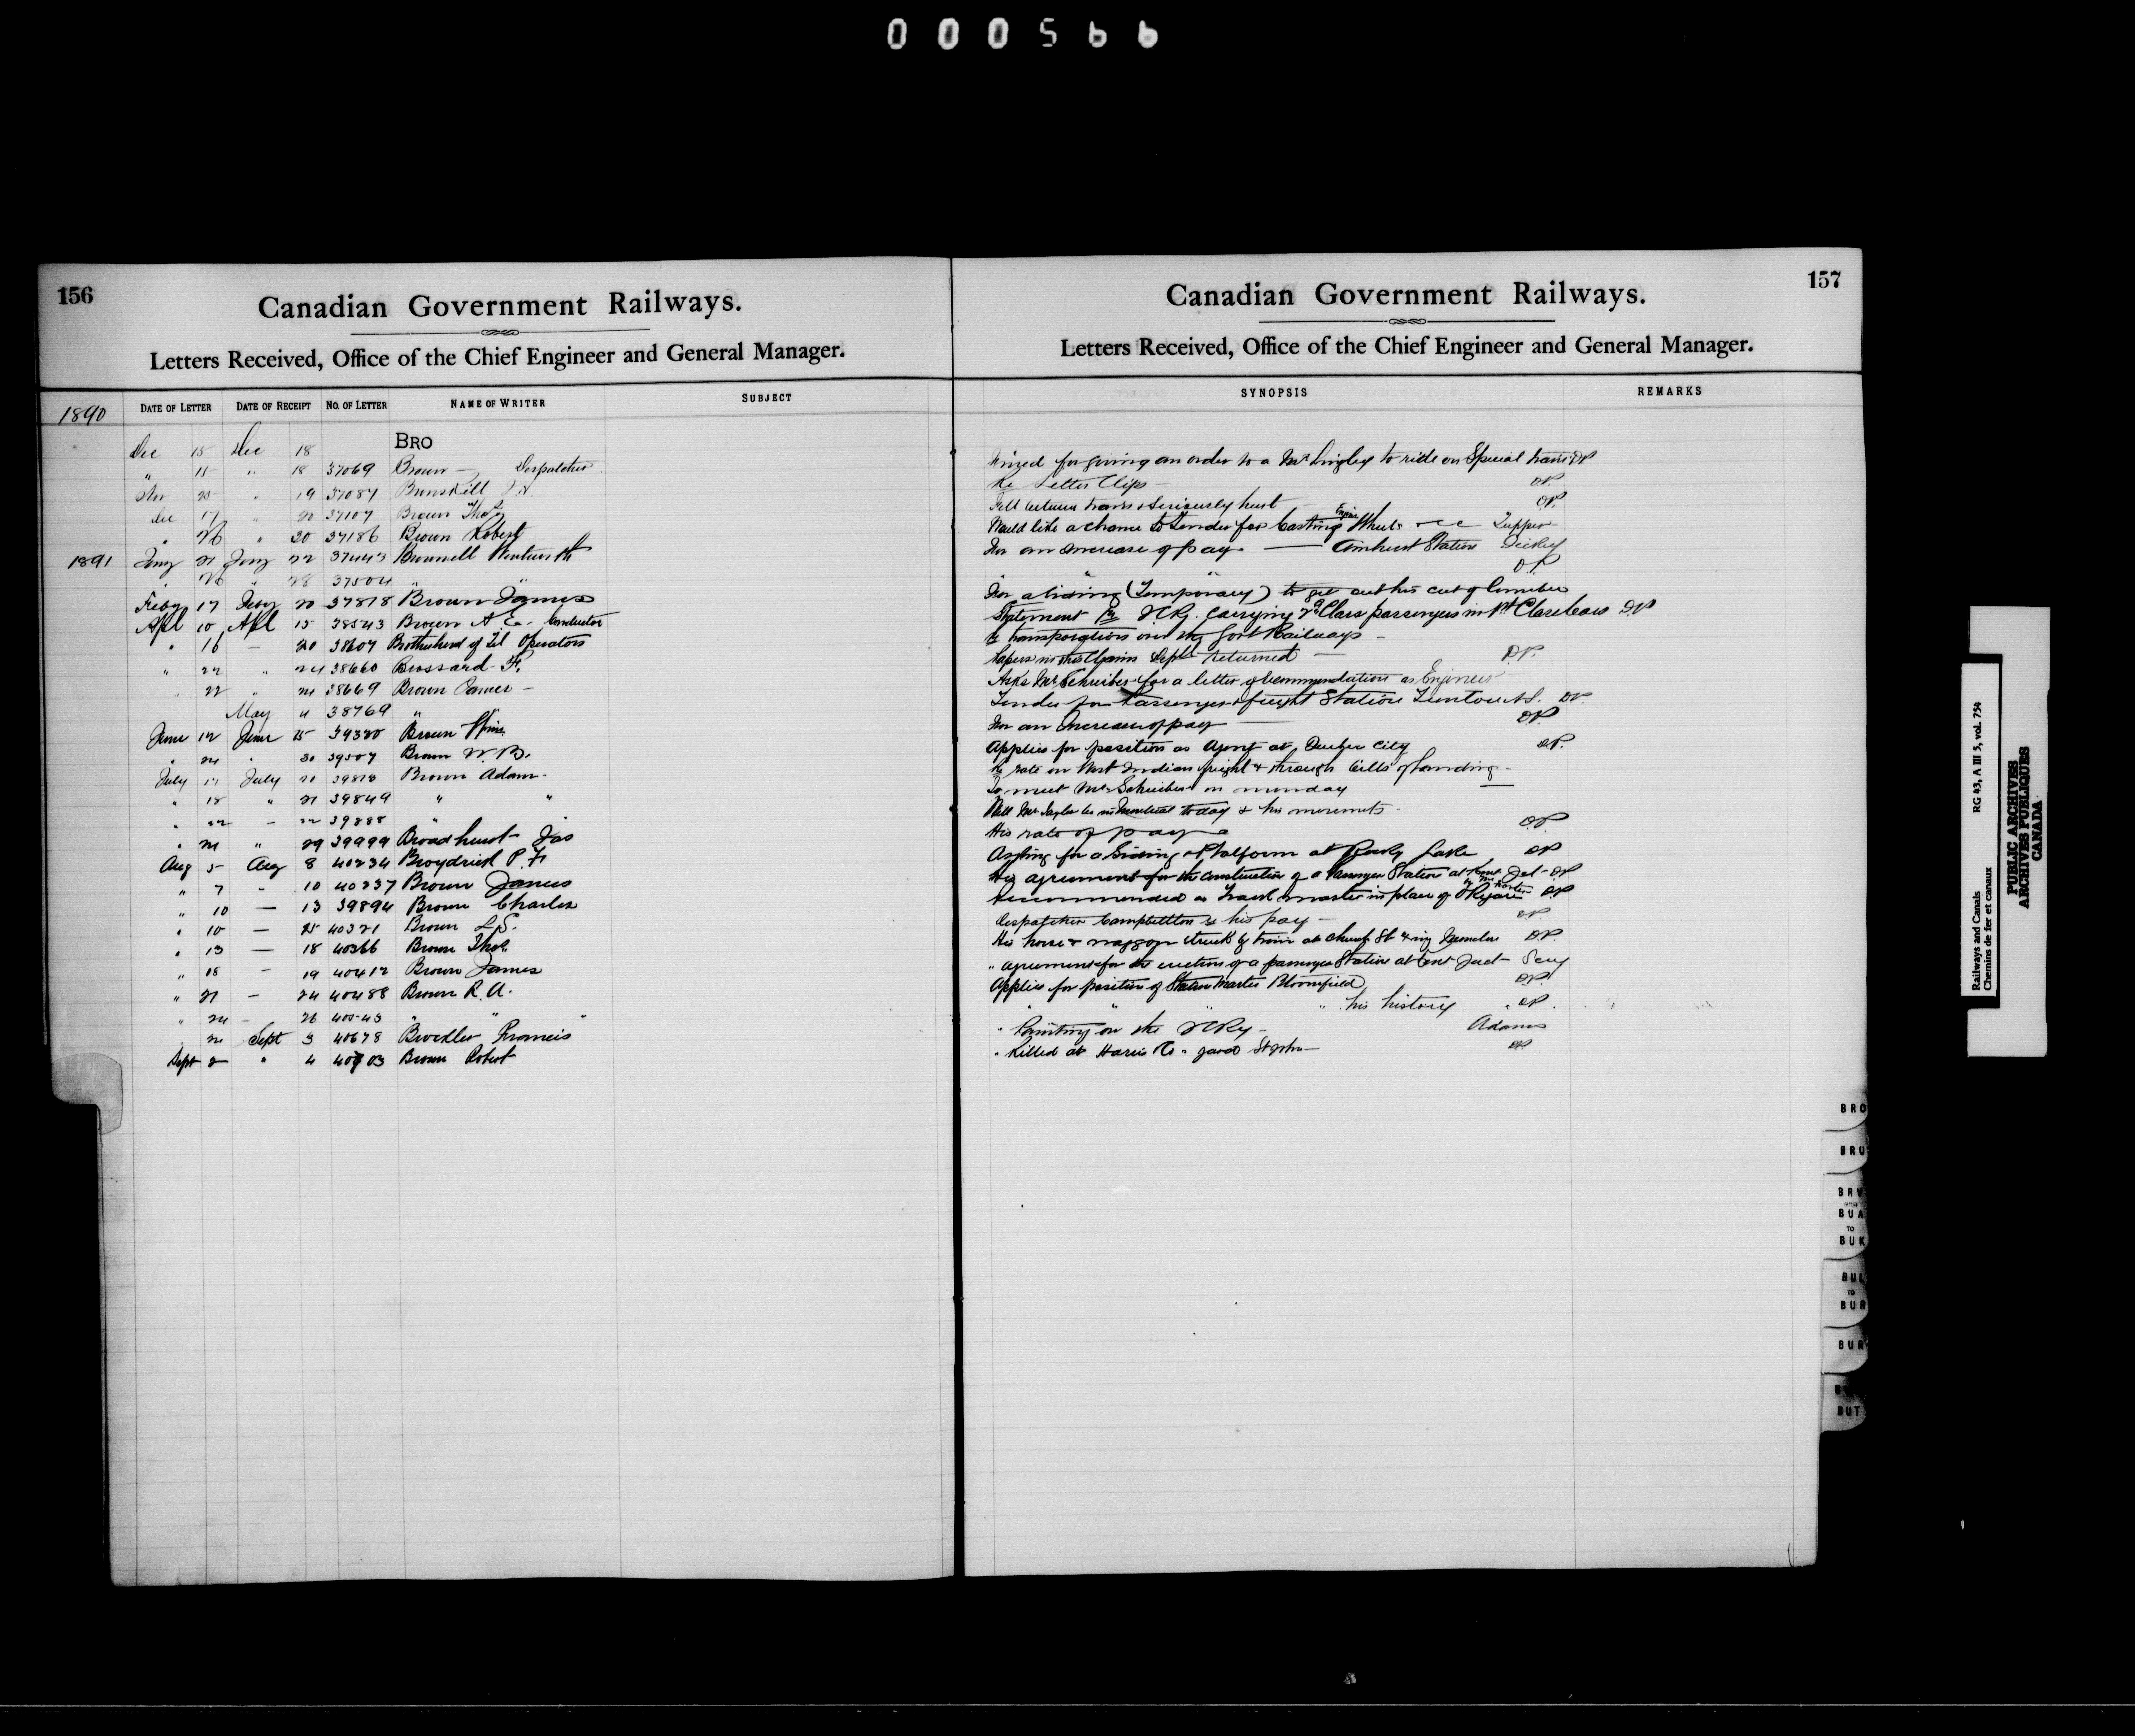 000566
156
Canadian Government Railways.
Letters Received, Office of the Chief Engineer and General Manager.
1890 DATE OF LETTER DATE OF RECEIPT NO. OF LETTER NAME OF WRITER SUBJECT
BRO
Dec 15 Dec 18
" 15 " 18 37069 Brown — Despatcher
Nov 25 " 19 37087 Brunskill
Dec 17 " 20 37107 Brown Thos
" 26 " 30 37186 Brown Robert
1891 Jany 21 Jany 22 37443 Brownell Wentworth
" 26 " 28 37504 " "
Feby 17 Feby 20 37878 Brown James
Apl 10 Apl 15 38543 Brown A E - Conductor
" 16 — 20 38607 Brotherhood of Tel Operators
" 22 " 24 38660 Brossard F.
" 22 " 24 38669 Brown James -
May 4 38769 "
June 12 June 15 39320 Brown Wm
" 24 " 30 39507 Brown W. B.
July 17 July 21 39818 Brown Adam -
" 18 " 21 39849 " "
" 22 - 22 39888 "
" 24 " 29 39999 Broadhurst Jas
Aug 5 Aug 8 40234 Broydrick P. F.
" 7 - 10 40237 Brown James
" 10 — 13 39894 Brown Charles
" 10 — 15 40321 Brown L S.
" 13 — 18 40366 Brown Thos.
" 18 - 19 40412 Brown James
" 21 - 24 40488 Brown R. A.
" 24 - 26 40543 " " "
" 21 Sept 3 40678 Brockler Francis
Sept 2 " 4 40703 Brown Robert
157
Canadian Government Railways.
Letters Received, Office of the Chief Engineer and General Manager.
SYNOPSIS REMARKS
for giving an order to a Mr Lingley to ride on Special train DP
Re Letter Clips — DP.
Fell between trains & seriously hurt — DP.
Would like a chance to tender for Casting Engine Wheels Tupper
For an increase of pay — Amherst Station Dickey
" " " DP
For a siding (Temporary) to get out his cut of lumber
Statement Re ICRy. Carrying 2nd Class passengers in 1st Class cars DP
Re transportation over the Govt Railways -
Papers in this Claim Deptl returned — DP.
Asks Mr Schreiber for a letter of recommendation as Engineer
Tender for Passenger & freight Station DP.
For an Increase of pay — DP
Applies for position as Agent at, Quebec City DP.
Re rate on West Indian freight & through bills of landing -
To meet Mr Schreiber on monday —
Will Mr Taylor be in Montreal today & his movements -
His rate of pay DP.
Asking for a Siding & Platform at Rocky Lake DP
His agreement for the construction of a Passenger Station at Kent Jct - DP
Recommended as Track master in place of DP
Despatcher Campbellton Re his pay — DP
His horse & waggon struck by train at Church St Xing Moncton DP.
" agreement for the erection of a passenger Station at Kent Junct - Secy
Applies for position of Station Master Bloomfield DP.
" " " " his history " DP.
" Painting on the ICRy - Adams
" Killed at Harris Co. yard St John — DP
BRO
BRU
BRV
BUA
TO
BUK
BUL
TO
BUR
BUR
BUT
Railways and Canals RG 43, A III 5, vol. 754
Chemins de fer et canaux
PUBLIC ARCHIVES
ARCHIVES PUBLIQUES
CANADA